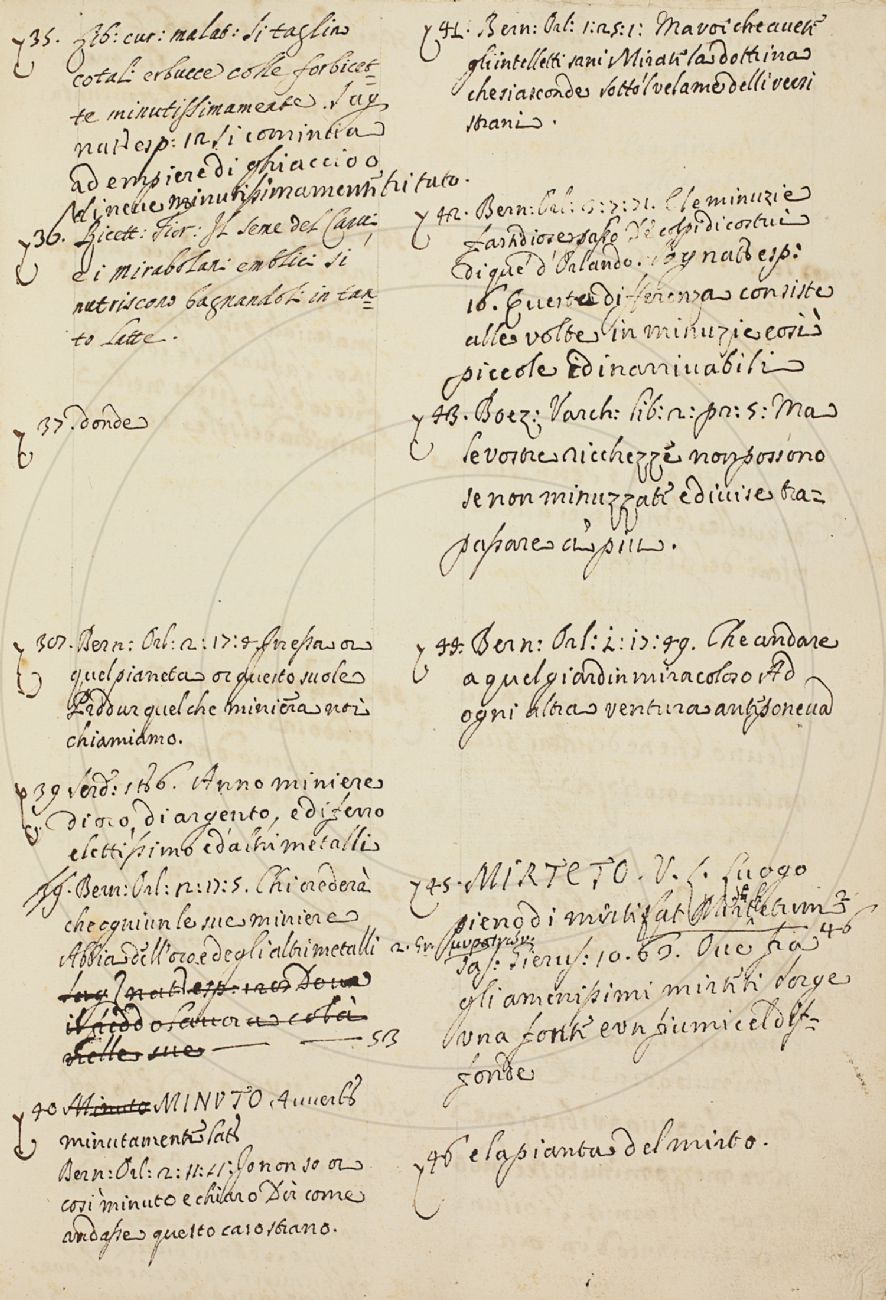 35. Lib: cur: malat: Si taglin
cotali erbucce colle forbicet=
te minutissimamente. Sag
nat esp: 12. Si comincia
ad empiere di ghiaccio o
di neve minutissimamente tritato.
36. Ricett: Fior: Il seme del
e i mirabolani emblici si
nutriscono bagnandoli in tan=
to latte.
37. donde
Bern: Orl: 2: 17: 4. In essa or
quel pianeta or questo suole
quel che miniera noi
chiamiamo.
39 Serd: 186. Anno miniere
di oro, di argento, e di ferro
elettissimo ed altri metalli
Bern: Orl: 12: 17: 5. Chi crederà
che ogniun le sue miniere
Abbia dell'oro e degli altri metalli
Sag nat esp: 128 Dove
il freddo lavora colà
nelle sue 53
40 Minuto MINUTO Avverb
minutamente lat
Bern: Orl: 2: 11: 45: Io non so or
così minuto e chiaro Dir come
andasse questo caso strano.
41. Bern: Orl: 1: 25: 1: Ma voi che avete
gli intelletti sani Mirate la dottrina
che si asconde sotto 'l velame delli versi
strani.
42. Bern: Orl: 7: 71. E le minuzie
far di ogni sasso De colpi di costui
di que' d'Orlando. Sag nat esp:
16. Questa differenza consiste
alle volte in minuzie così
piccole ed inarrivabili
43. Boez: Varch: lib: 2: pr: 5: Ma
le vostre ricchezze non possono
se non minuzzate e divise tra=
passare a più.
44. Bern: Orl: 1: 17: 49. Che andare
a quel giardin miracoloso Ad
ogni altra ventura anteponeva
45. MIRTETO. V. L. Luogo
pieno di mirti Lat Mirtetum
46
Tas: Gierus: 10. 63. Ove fra
gli amenissimi mirteti sorge
una fonte e un fiumicel dif=
fonde
46 e la pianta del mirto.